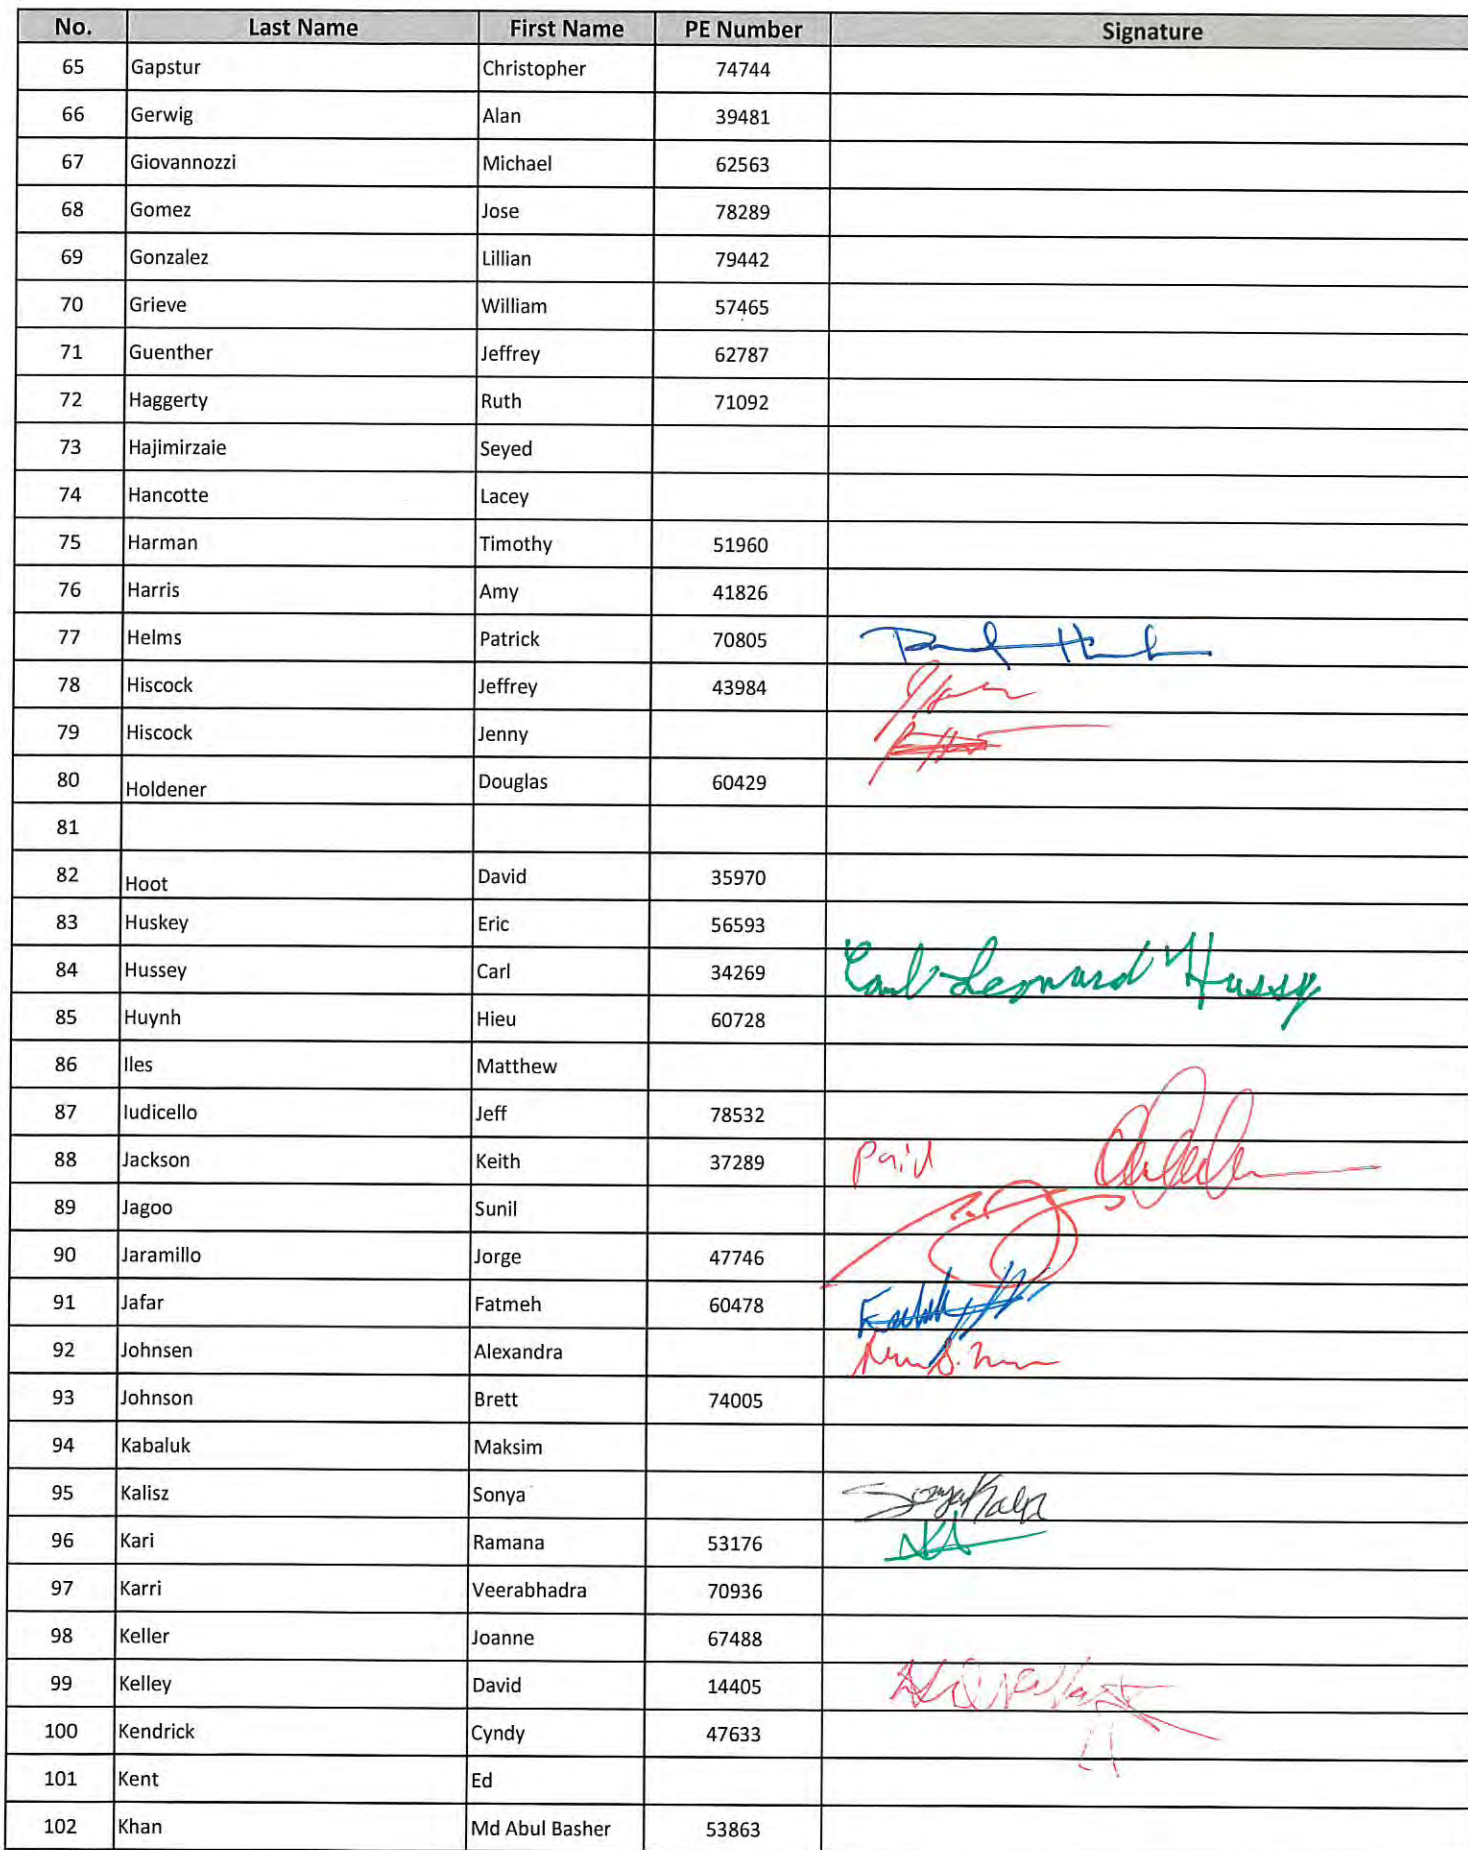 No. Last Name First Name PE Number Signature
65 Gapstur Christopher 74744
66 Gerwig Alan 39481
67 Giovannozzi Michael 62563
68 Gomez Jose 78289
69 Gonzalez Lillian 79442
70 Grieve William 57465
71 Guenther Jeffrey 62787
72 Haggerty Ruth 71092
73 Hajimirzaie Seyed
74 Hancotte Lacey
75 Harman Timothy 51960
76 Harris Amy 41826
77 Helms Patrick 70805
78 Hiscock Jeffrey 43984
79 Hiscock Jenny
80 Holdener Douglas 60429
81
82 Hoot David 35970
83 Huskey Eric 56593
84 Hussey Carl 34269 Carl Leonard Hussey
85 Huynh Hieu 60728
86 Iles Matthew
87 Iudicello Jeff 78532
88 Jackson Keith 37289 paid
89 Jagoo Sunil
90 Jaramillo Jorge 47746
91 Jafar Fatmeh 60478
92 Johnsen Alexandra
93 Johnson Brett 74005
94 Kabaluk Maksim
95 Kalisz Sonya Sonya Kalisz
96 Kari Ramana 53176
97 Karri Veerabhadra 70936
98 Keller Joanne 67488
99 Kelley David 14405
100 Kendrick Cyndy 47633
101 Kent Ed
102 Khan Md Abul Basher 53863